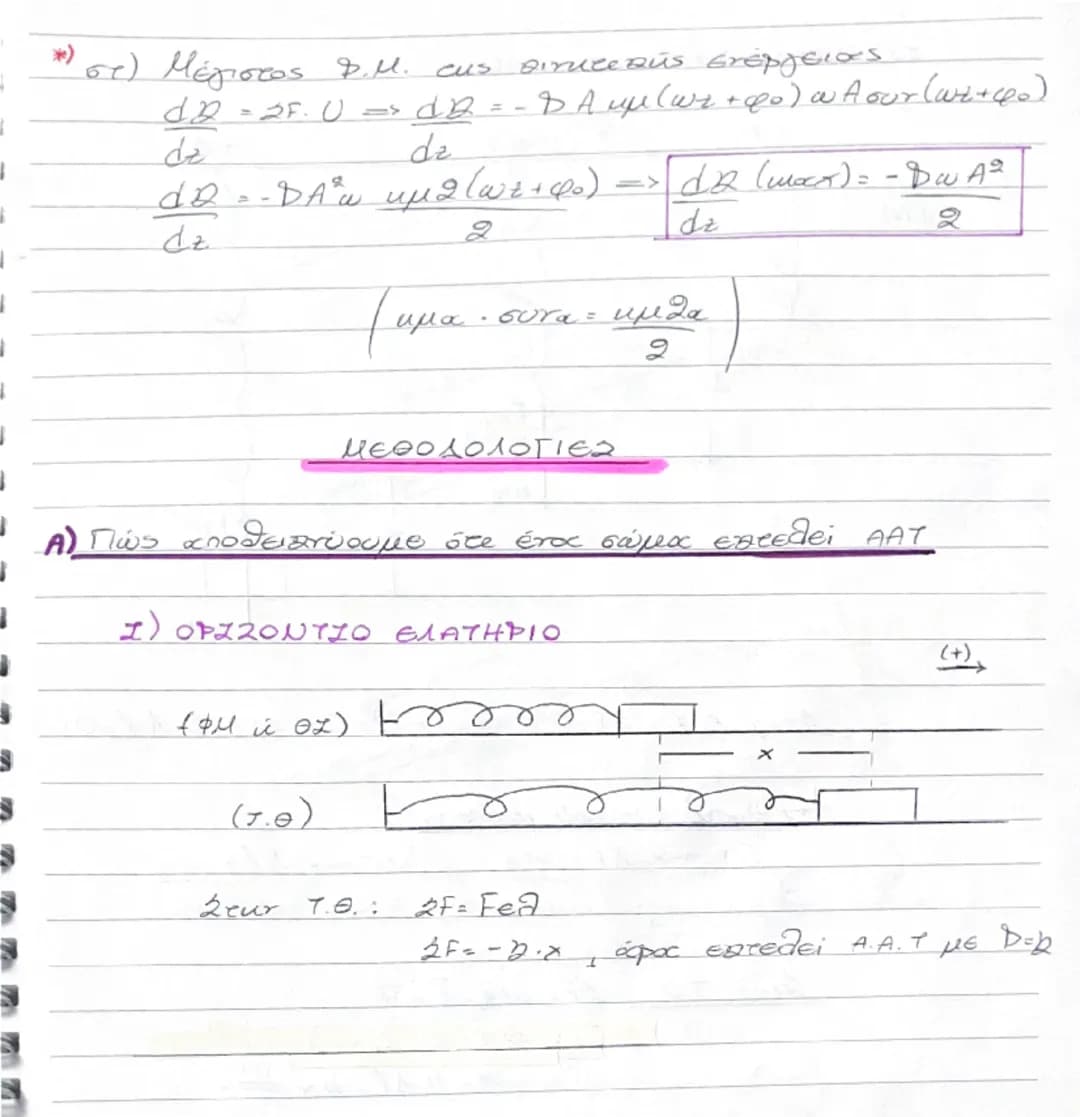 *) στ) Μέγιστος Ρ.Μ. της κινητικής ενέργειας
dK/dt = ΣF·U => dK/dt = -DAημ(ωt+φ0)ωAσυν(ωt+φ0)
dK/dt = -DA²ω ημ2(ωt+φ0)/2 => dK/dt (max) = -DωA²/2
(ημα · συνα = ημ2α/2)
ΜΕΘΟΔΟΛΟΓΙΕΣ
Α) Πώς αποδεικνύουμε ότι ένα σώμα εκτελεί ΑΑΤ
I) ΟΡΙΖΟΝΤΙΟ ΕΛΑΤΗΡΙΟ
(+)
(ΦΜ ή ΘΙ)
x
(Τ.Θ)
Στην Τ.Θ.: ΣF= Fελ
ΣF= -k·x, άρα εκτελεί Α.Α.Τ με D=k